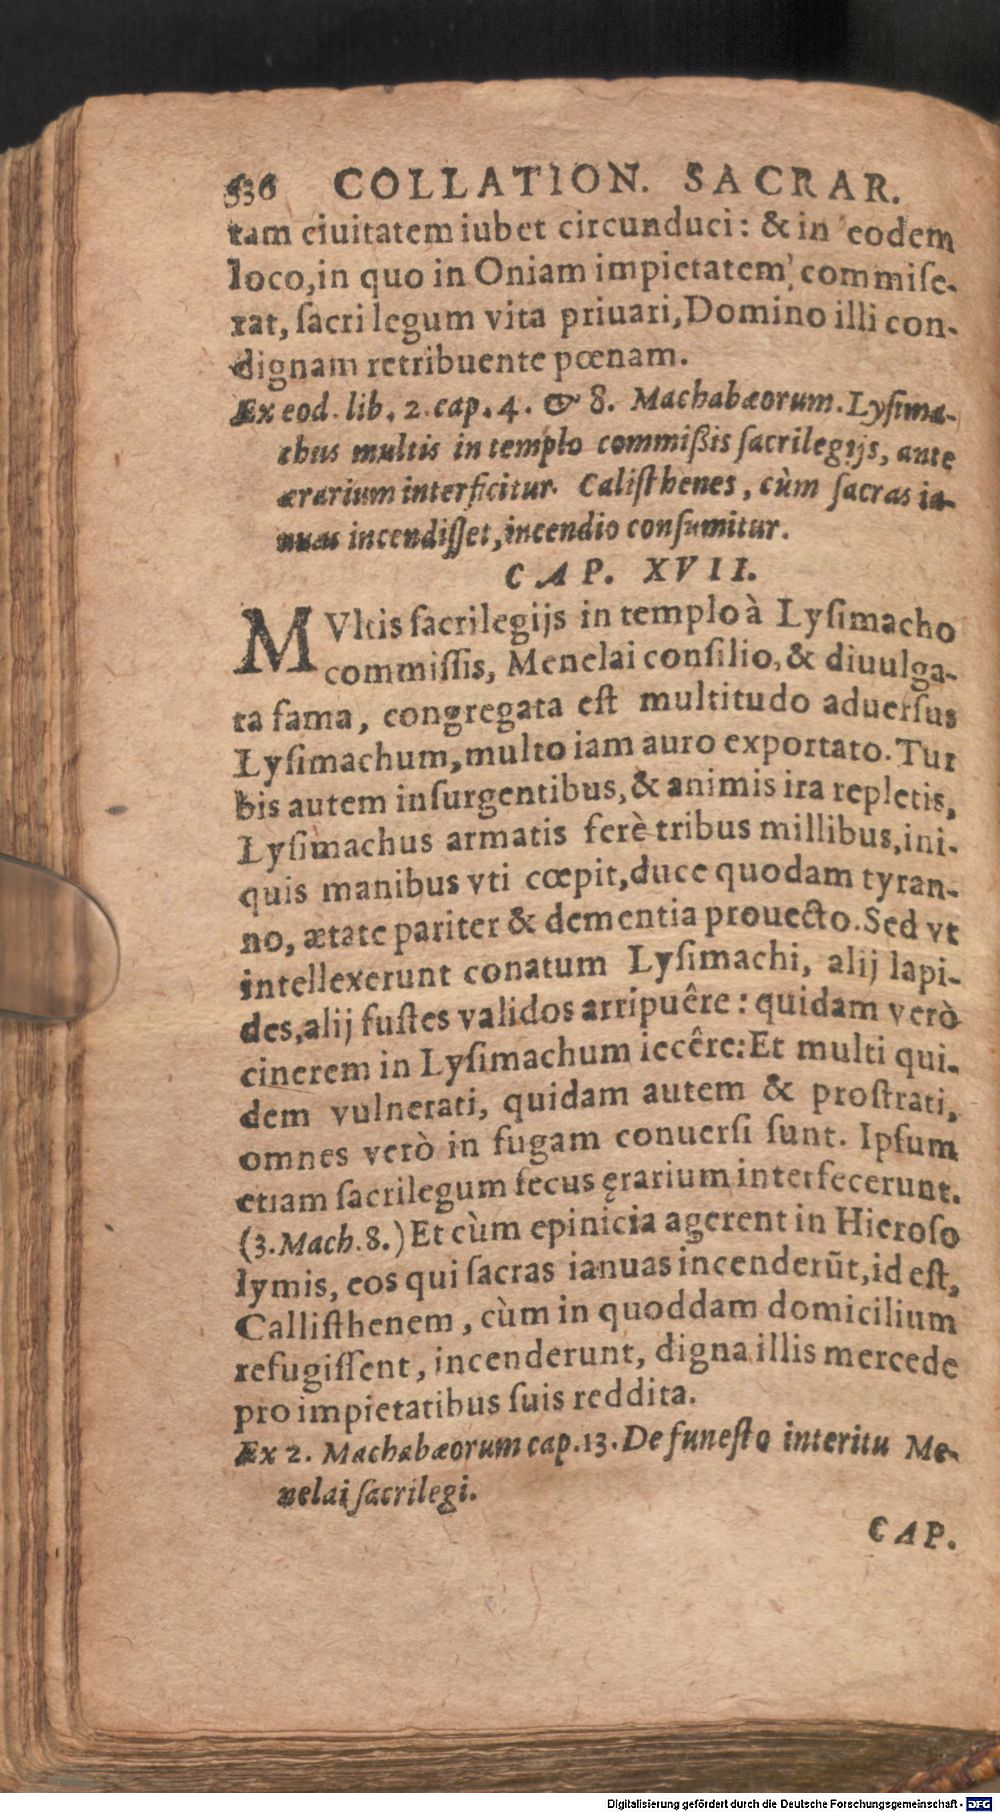 536 COLLATION. SACRAR.
tam ciuitatem iubet circunduci: & in eodem
loco, in quo in Oniam impietatem, commiſe-
rat, ſacrilegum vita priuari, Domino illi con-
dignam retribuente pœnam.
Ex eod. lib. 2. cap. 4. & 8. Machabæorum. Lyſima-
chus multis in templo commißis ſacrilegijs, ante
ærarium interficitur. Caliſthenes, cùm ſacras ia-
nuas incendiſſet, incendio conſumitur.
CAP. XVII.
MVltis ſacrilegijs in templo à Lyſimacho
commiſſis, Menelai conſilio, & diuulga-
ta fama, congregata eſt multitudo aduerſus
Lyſimachum, multo iam auro exportato. Tur
bis autem inſurgentibus, & animis ira repletis,
Lyſimachus armatis ferè tribus millibus, ini-
quis manibus vti cœpit, duce quodam tyran-
no, ætate pariter & dementia prouecto. Sed vt
intellexerunt conatum Lyſimachi, alij lapi-
des, alij fuſtes validos arripuêre: quidam verò
cinerem in Lyſimachum iecêre: Et multi qui-
dem vulnerati, quidam autem & proſtrati,
omnes verò in fugam conuerſi ſunt. Ipſum
etiam ſacrilegum ſecus ęrarium interfecerunt.
(3. Mach. 8.) Et cùm epinicia agerent in Hieroſo
lymis, eos qui ſacras ianuas incenderūt, id eſt,
Calliſthenem, cùm in quoddam domicilium
refugiſſent, incenderunt, digna illis mercede
pro impietatibus ſuis reddita.
Ex 2. Machabæorum cap. 13. De funeſto interitu Me-
nelai ſacrilegi.
CAP.
Digitalisierung gefördert durch die Deutsche Forschungsgemeinschaft - DFG